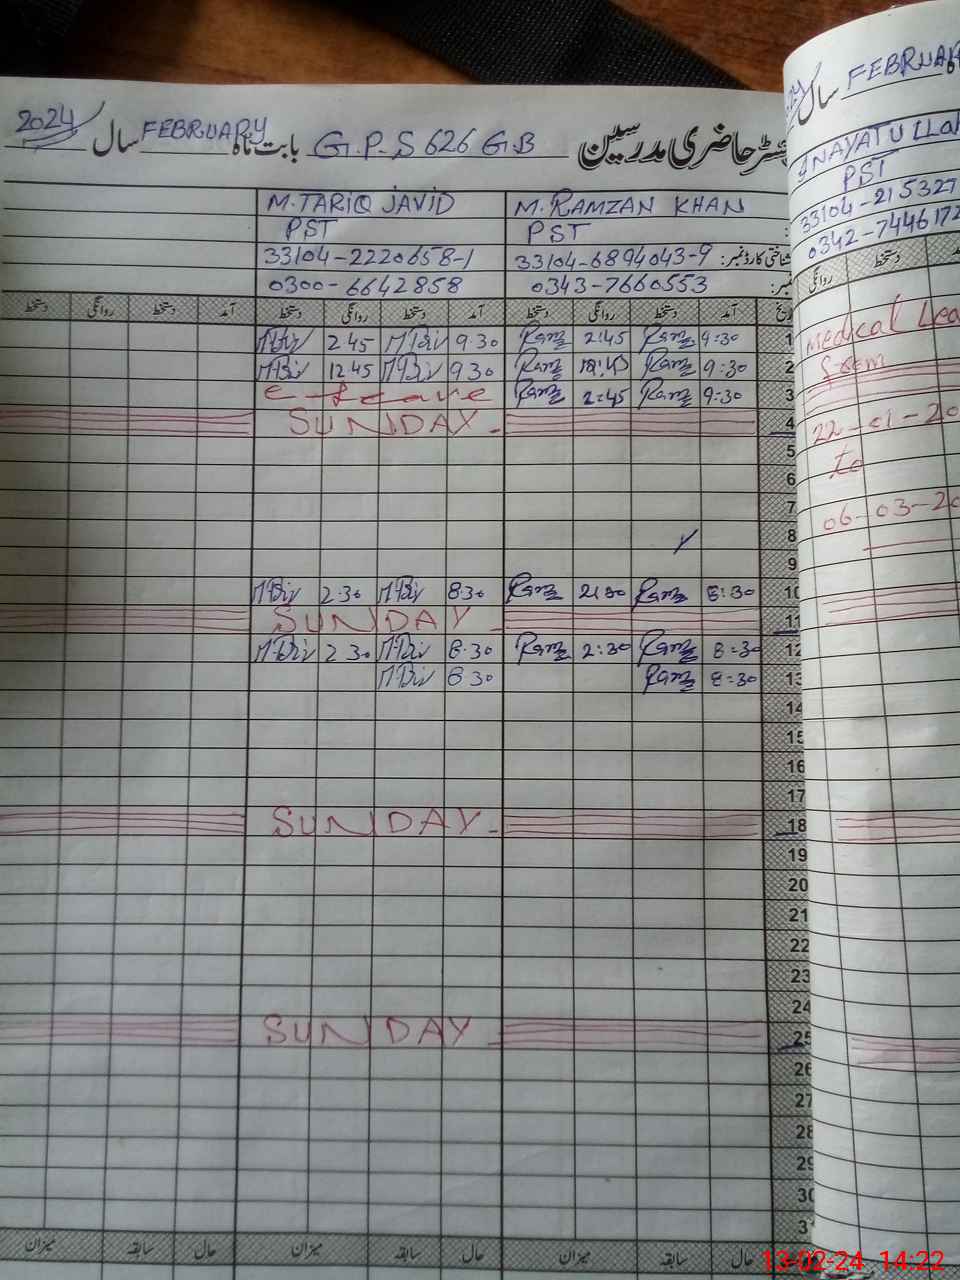 رجسٹر حاضری مدرسین G.P.S 626 GB بابت ماہ FEBRUARY سال 2024
M. RAMZAN KHAN M. TARIQ JAVID
PST PST
شناختی کارڈ نمبر: 33104-6894043-9 33104-2220658-1
0343-7660553 0300-6642858
آمد دستخط روانگی دستخط آمد دستخط روانگی دستخط آمد دستخط روانگی دستخط
1 9:30 Ramz 2:45 Ramz 9 30 2 45
2 9:30 Ramz Ramz 9 30 12 45
3 9:30 Ramz 2:45 Ramz e-Leave
4 SUNDAY
5
6
7
8
9
10 8:30 Ramz Ramz 8·30 2·30
11 SUNDAY
12 8:30 Ramz 2:30 Ramz 8·30 2 30
13 8:30 Ramz 8 30
14
15
16
17
18 SUNDAY
19
20
21
22
23
24
25 SUNDAY
26
27
28
29
30
31
حال سابقہ میزان حال سابقہ میزان حال سابقہ میزان
سال FEBRUAR
ANAYATU LLAH
PST
33104-215327
0342-7446172
دستخط روانگی
Medical Lea
from
22-01-20
to
06-03-20
13-02-24 14:22